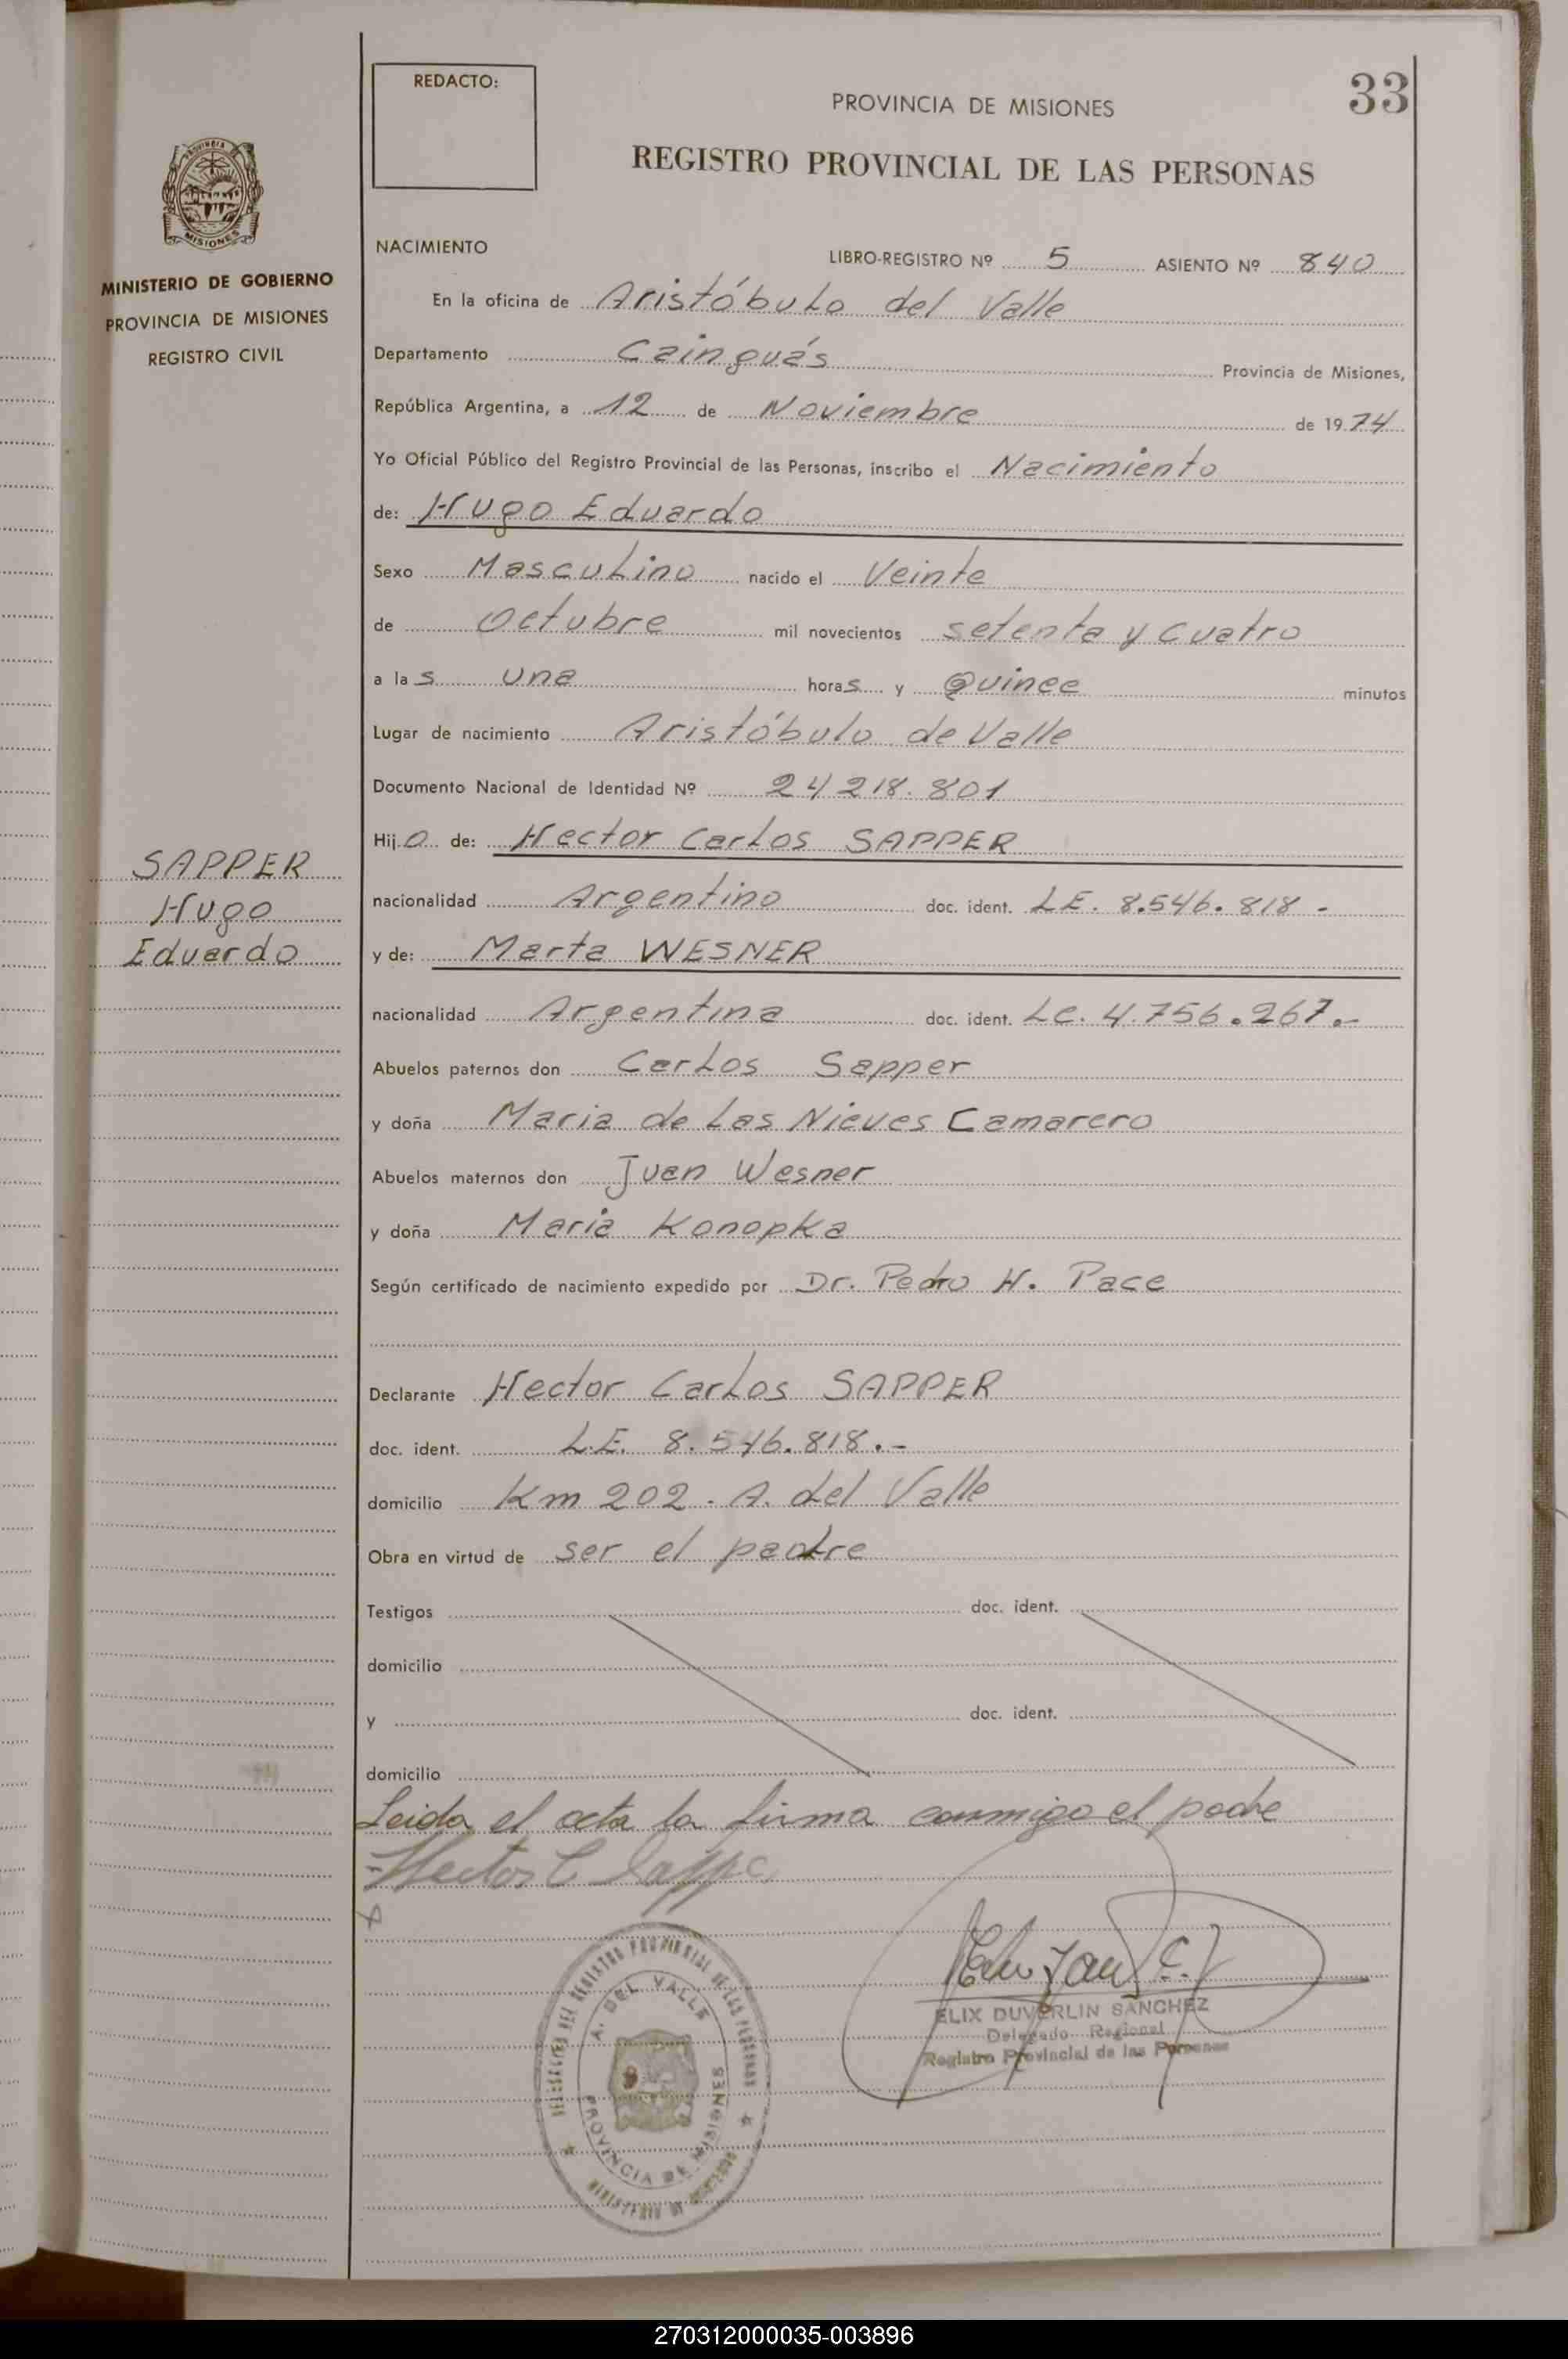 REDACTO:
33
PROVINCIA DE MISIONES
REGISTRO PROVINCIAL DE LAS PERSONAS
PROVINCIA DE
MISIONES
MINISTERIO DE GOBIERNO
PROVINCIA DE MISIONES
REGISTRO CIVIL
NACIMIENTO
LIBRO-REGISTRO Nº 5 ASIENTO Nº 840
En la oficina de Aristóbulo del Valle
Departamento Cainguás Provincia de Misiones,
República Argentina, a 12 de Noviembre de 1974
Yo Oficial Público del Registro Provincial de las Personas, inscribo el Nacimiento
de: Hugo Eduardo
Sexo Masculino nacido el Veinte
de Octubre mil novecientos setenta y cuatro
a las una horas y Quince minutos
Lugar de nacimiento Aristóbulo de Valle
Documento Nacional de Identidad Nº 24218.801
Hijo de: Hector Carlos SAPPER
SAPPER
Hugo
Eduardo
nacionalidad Argentino doc. ident. LE. 8.546.818 -
y de: Marta WESNER
nacionalidad Argentina doc. ident. LC. 4.756.267.-
Abuelos paternos don Carlos Sapper
y doña Maria de Las Nieves Camarero
Abuelos maternos don Juan Wesner
y doña Maria Konopka
Según certificado de nacimiento expedido por Dr. Pedro H. Pace
Declarante Hector Carlos SAPPER
doc. ident. L.E. 8.546.818.-
domicilio Km 202 - A. del Valle
Obra en virtud de ser el padre
Testigos doc. ident.
domicilio
y doc. ident.
domicilio
Leida el acta la firma conmigo el padre
Hector C Sapper
ELIX DUVERLIN SANCHEZ
Delegado Regional
Registro Provincial de las Personas
DELEGACION DEL REGISTRO PROVINCIAL DE LAS PERSONAS
A. DEL VALLE
PROVINCIA DE MISIONES
MINISTERIO DE GOBIERNO
270312000035-003896